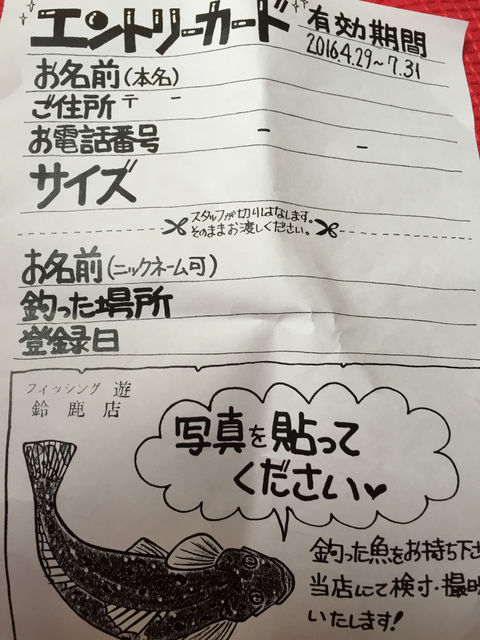 エントリーカード
有効期間
2016.4.29~7.31
お名前(本名)
ご住所 〒 -
お電話番号 - -
サイズ
スタッフが切りはなします。
そのままお渡しください。
お名前(ニックネーム可)
釣った場所
登録日
フィッシング 遊
鈴鹿店
写真を貼って
ください♥
釣った魚をお持ち下さ
当店にて検寸・撮
いたします!